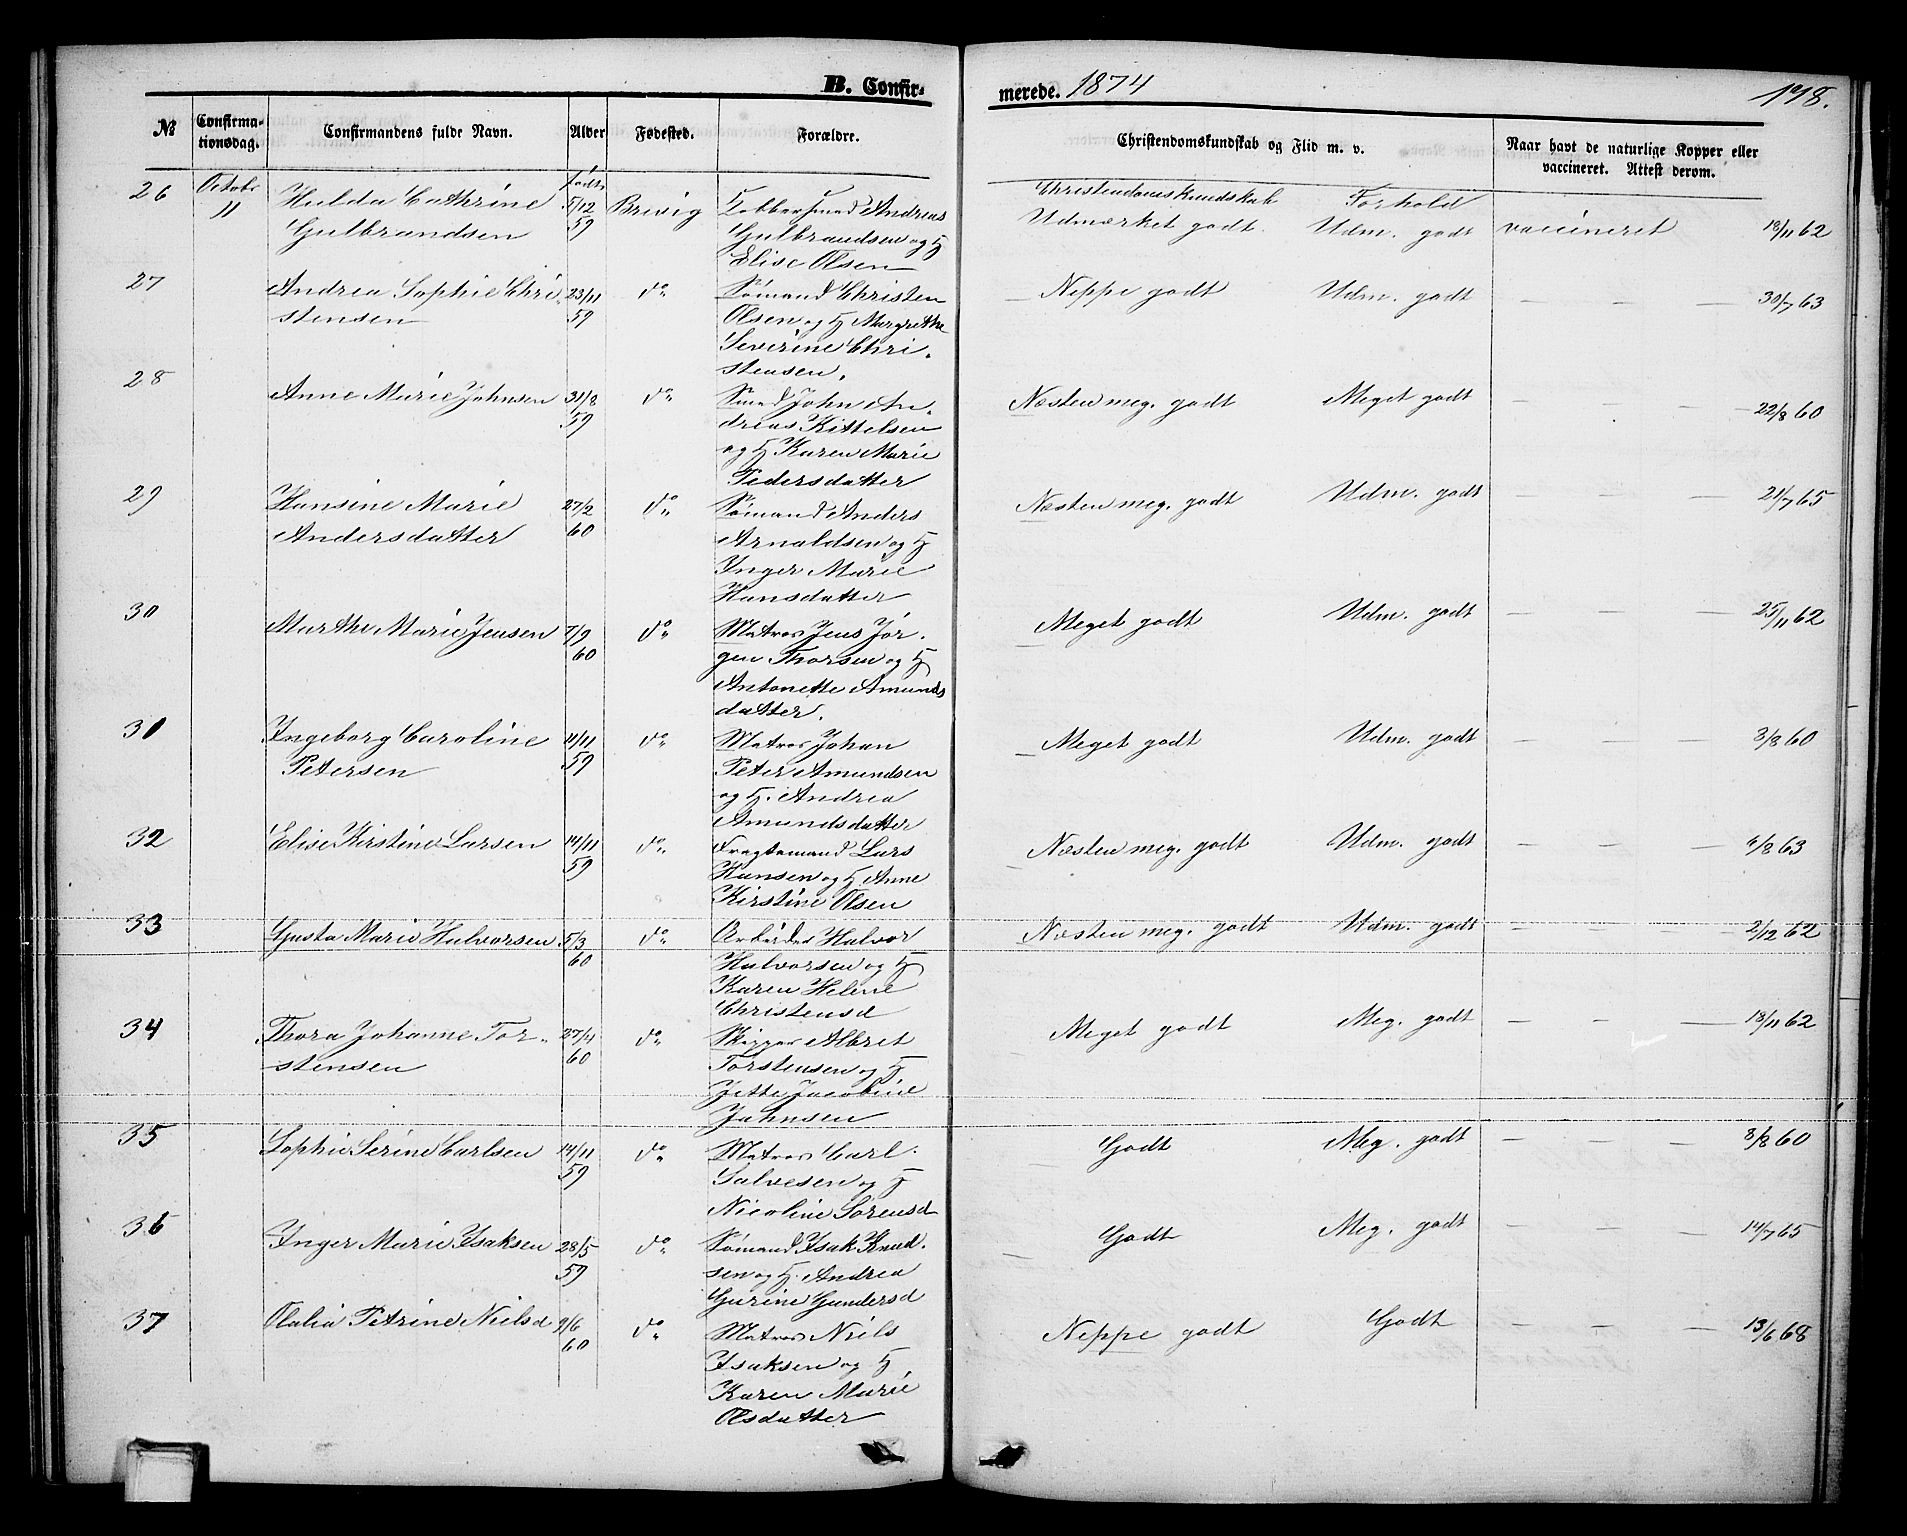 B. Confir-
merede. 1874
198.
№
Confirma-
tionsdag.
Confirmandens fulde Navn.
Alder
Fødested.
Forældre.
Christendomskundskab og Flid m. v.
Naar havt de naturlige Kopper eller
vaccineret. Attest derom.
26
Octobr
11
Hulda Cathrine
Gulbrandsen
født
5/12
59
Brevig
Andreas
Gulbrandsen og H
Elise Olsen
Christendomskundskab
Udmærket godt.
Forhold
Udm. godt
vaccineret
18/11 62
27
Andrea Sophie Chri-
stensen
23/11
59
do
Sømand Christen
Olsen og H Margrethe
Severine Chri-
stensen.
Neppe godt
Udm. godt
— — —
30/7 63
28
Anne Marie Johnsen
31/8
59
do
Smed John An-
dreas Kittelsen
og H Karen Marie
Pedersdatter
Næsten meg. godt
Meget godt
— — —
22/8 60
29
Hansine Marie
Andersdatter
27/2
60
do
Sømand Anders
Arnaldsen og H
Inger Marie
Hansdatter
Næsten meg. godt
Udm. godt
— — —
21/7 65
30
Marthe Marie Jensen
7/9
60
do
Matros Jens Jør-
gen Thorsen og H
Antonette Amunds
datter.
Meget godt
Udm. godt
— — —
25/11 62
31
Ingeborg Caroline
Petersen
11/11
59
do
Matros Johan
Peter Amundsen
og H. Andrea
Amundsdatter
Meget godt
Udm. godt
— — —
3/8 60
32
Elise Kirstine Larsen
14/11
59
do
Fragtemand Lars
Hansen og H Anne
Kirstine Olsen
Næsten meg. godt
Udm. godt
— — —
6/8 63
33
Gusta Marie Halvorsen
5/3
60
do
Arbeider Halvor
Halvorsen og H
Karen Helene
Christensd
Næsten meg. godt
Udm. godt
— — —
2/12 62
34
Thora Johanne Tor-
stensen
27/4
60
do
Skipper Albret
Torstensen og H
Jette Jacobine
Johnsen
Meget godt
Meg. godt
— — —
13/11 62
35
Sophie Serine Carlsen
14/11
59
do
Matros Carl
Salvesen og H
Nicoline Sørensd
Godt
Meg. godt
— — —
8/8 60
36
Inger Marie Isaksen
28/5
59
do
Sømand Isak Knud-
sen og H. Andrea
Gurine Gundersd
Godt
Meg. godt
— — —
14/7 65
37
Olalia Petrine Nielsd
9/6
60
do
Matros Niels
Isaksen og H
Karen Marie
Olsdatter
Neppe godt
Godt
— — —
13/6 68